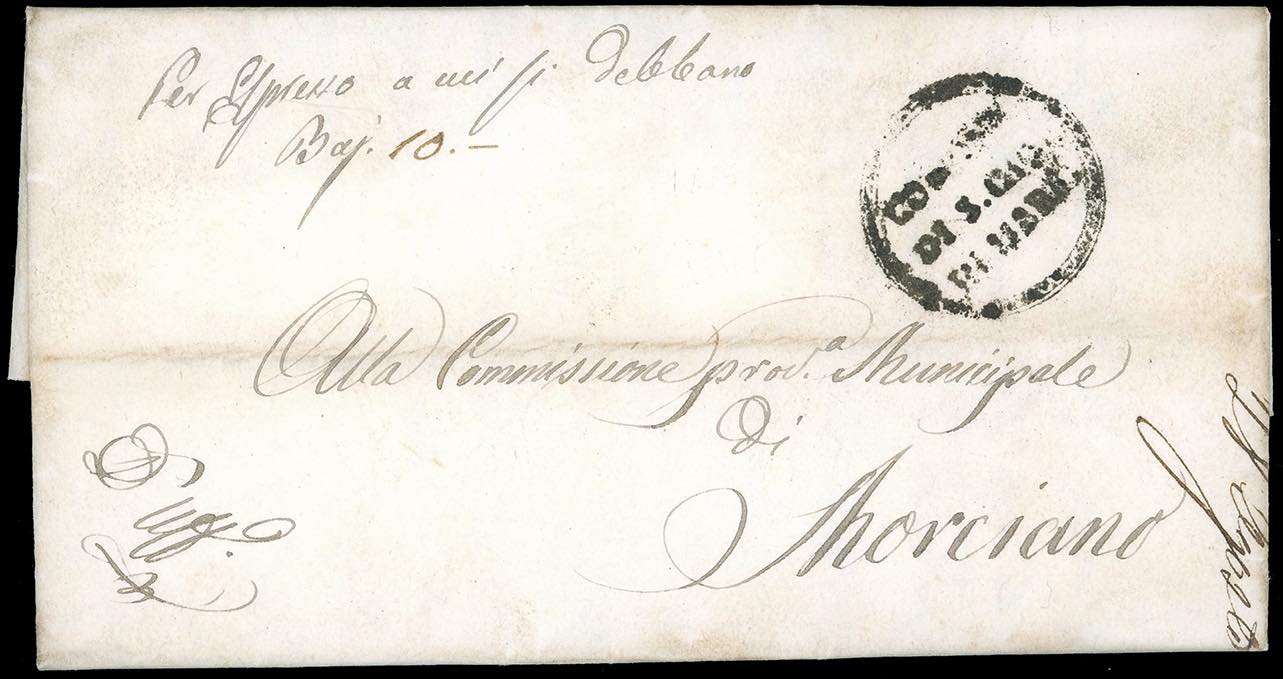 Per Espresso a cui si debbano
Baj. 10.—
DI S. GIO
IN MARI
Alla Commissione prov.a Municipale
Di
Morciano